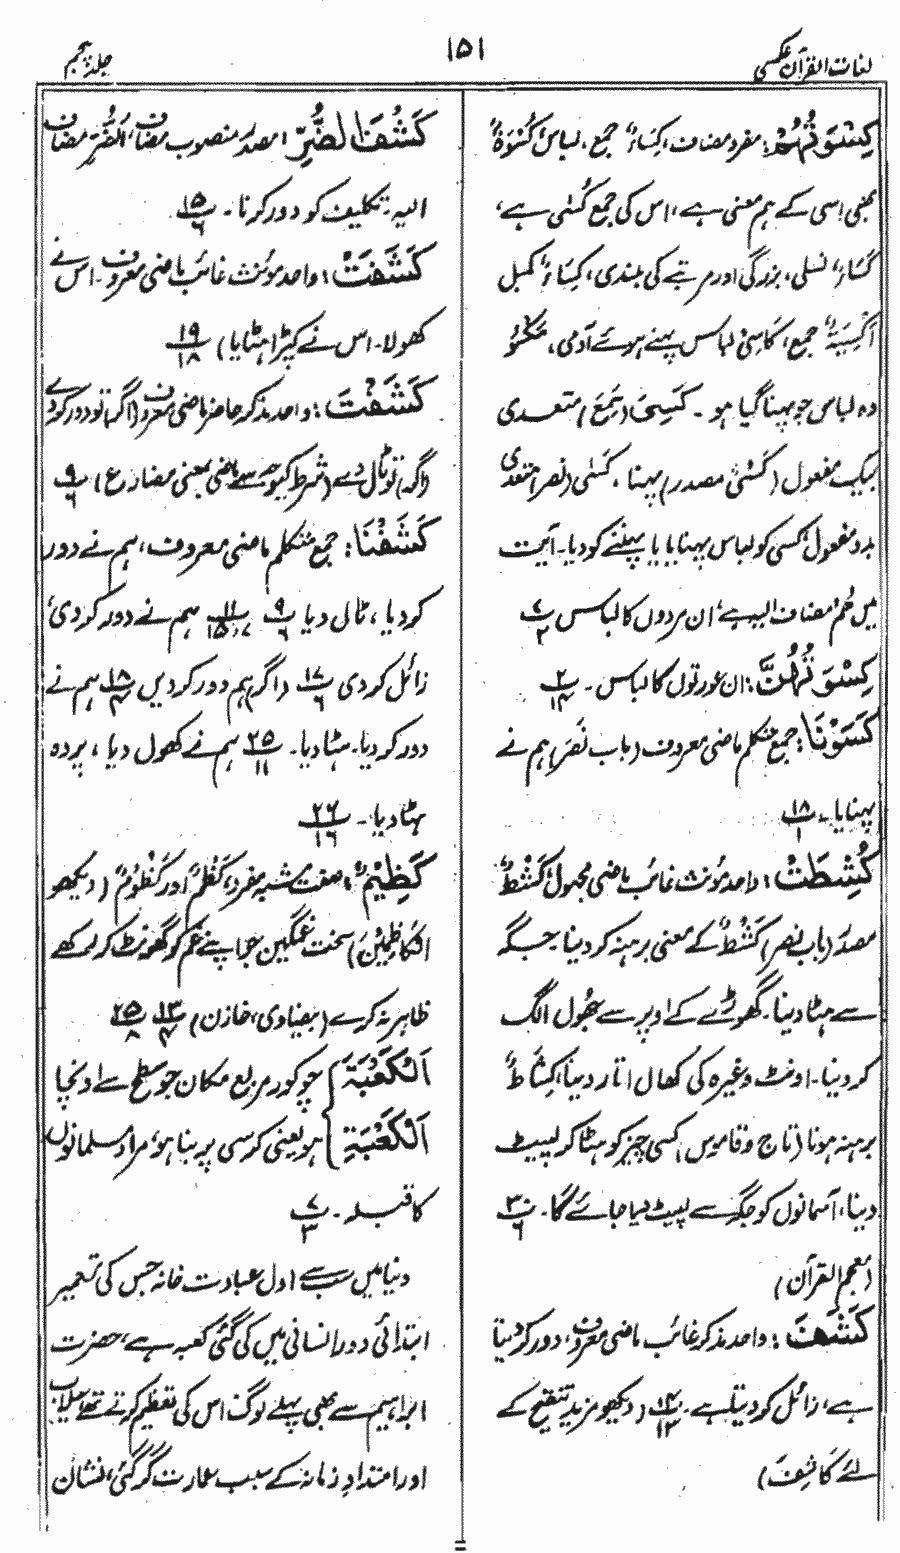 لغات القرآن عکسی
۱۵۱
جلد پنجم
کِسْوَتُهُمْ: مفرد مضاف، کِسَاءٌ جمع، لباس کُسْوَۃٌ
بھی اسی کے ہم معنی ہے، اس کی جمع کُسٰی ہے،
کَسَاءٌ نسلی، بزرگی اور مرتبے کی بلندی، کِسَاءٌ کمبل
اَکْسِیَۃٌ جمع، کَاسٍی لباس پہنے ہوئے آدمی،
وہ لباس جو پہنا گیا ہو۔ کَسِیَ (سَمِعَ) متعدی
بیک مفعول (کَسْیٌ مصدر) پہنا، کَسٰی (نصر) متعدی
بدو مفعول کسی کو لباس پہنایا یا پہننے کو دیا۔ آیت
میں هُمْ مضاف الیہ ہے ان مردوں کا لباس ۷/۲
کِسْوَتُهُنَّ: ان عورتوں کا لباس۔ ۲/۱۴
کَسَوْنَا: جمع متکلم ماضی معروف (باب نَصَرَ) ہم نے
پہنایا۔ ۱۸/۱
کُشِطَتْ: واحد مؤنث غائب ماضی مجہول کَشْطٌ
مصدر (باب نصر) کَشْطٌ کے معنی برہنہ کر دینا۔ جگہ
سے ہٹا دینا۔ گھوڑے کے اوپر سے جھول الگ
کر دینا۔ اونٹ وغیرہ کی کھال اتار دینا، کِشَاطٌ
برہنہ ہونا (تاج و قاموس) کسی چیز کو ہٹا کر لپیٹ
دینا، آسمانوں کو جگہ سے لپیٹ لیا جائے گا۔ ۳۰/۶
(معجم القرآن)
کَشَفَ: واحد مذکر غائب ماضی معروف، دور کر دیتا
ہے، زائل کر دیتا ہے۔ ۱۴/۱۳ (دیکھو مزید تنقیح کے
لئے کَاشِفَ)
کَشْفَ الضُّرِّ: مصدر منصوب مضاف، اَلضُّرِّ مضاف
الیہ۔ تکلیف کو دور کرنا۔ ۱۵/۶
کَشَفَتْ: واحد مؤنث غائب ماضی معروف۔ اس نے
کھولا۔ اس نے کپڑا ہٹایا) ۱۹/۱۸
کَشَفْتَ: واحد مذکر حاضر ماضی معروف (اگر) تو دور کر دے
(اگر) تو ٹال دے (شرط کیوجہ سے ماضی بمعنی مضارع) ۹/۶
کَشَفْنَا: جمع متکلم ماضی معروف، ہم نے دور
کر دیا، ٹال دیا ۹/۶ ۱۱/۷،۱۵ ہم نے دور کر دی،
زائل کر دی ۱۷/۶ (اگر) ہم دور کر دیں ۱۸/۴ ہم نے
دور کر دیا۔ ہٹا دیا۔ ۲۵/۱۱ ہم نے کھول دیا، پردہ
ہٹا دیا۔ ۲۶/۱۶
کَظِیْمٌ: صفت مشبہ مفرد، کَظْمٌ اور کَظُوْمٌ (دیکھو
الْکَاظِمِیْنَ) سخت غمگین جو اپنے غم کو گھونٹ کر رکھے
ظاہر نہ کرے (بیضاوی، خازن) ۱۳/۴ ۲۵/۸
اَلْکَعْبَۃَ } چوکور مربع مکان جو سطح سے اونچا
اَلْکَعْبَۃِ } ہو یعنی کرسی پر بنا ہو، مراد مسلمانوں
کا قبلہ۔ ۷/۳
دنیا میں سب سے اول عبادت خانہ جس کی تعمیر
ابتدائی دور انسانی میں کی گئی کعبہ ہے، حضرت
ابراہیم سے بھی پہلے لوگ اس کی تعظیم کرتے تھے سیلاب
اور امتداد زمانہ کے سبب عمارت گر گئی، نشان